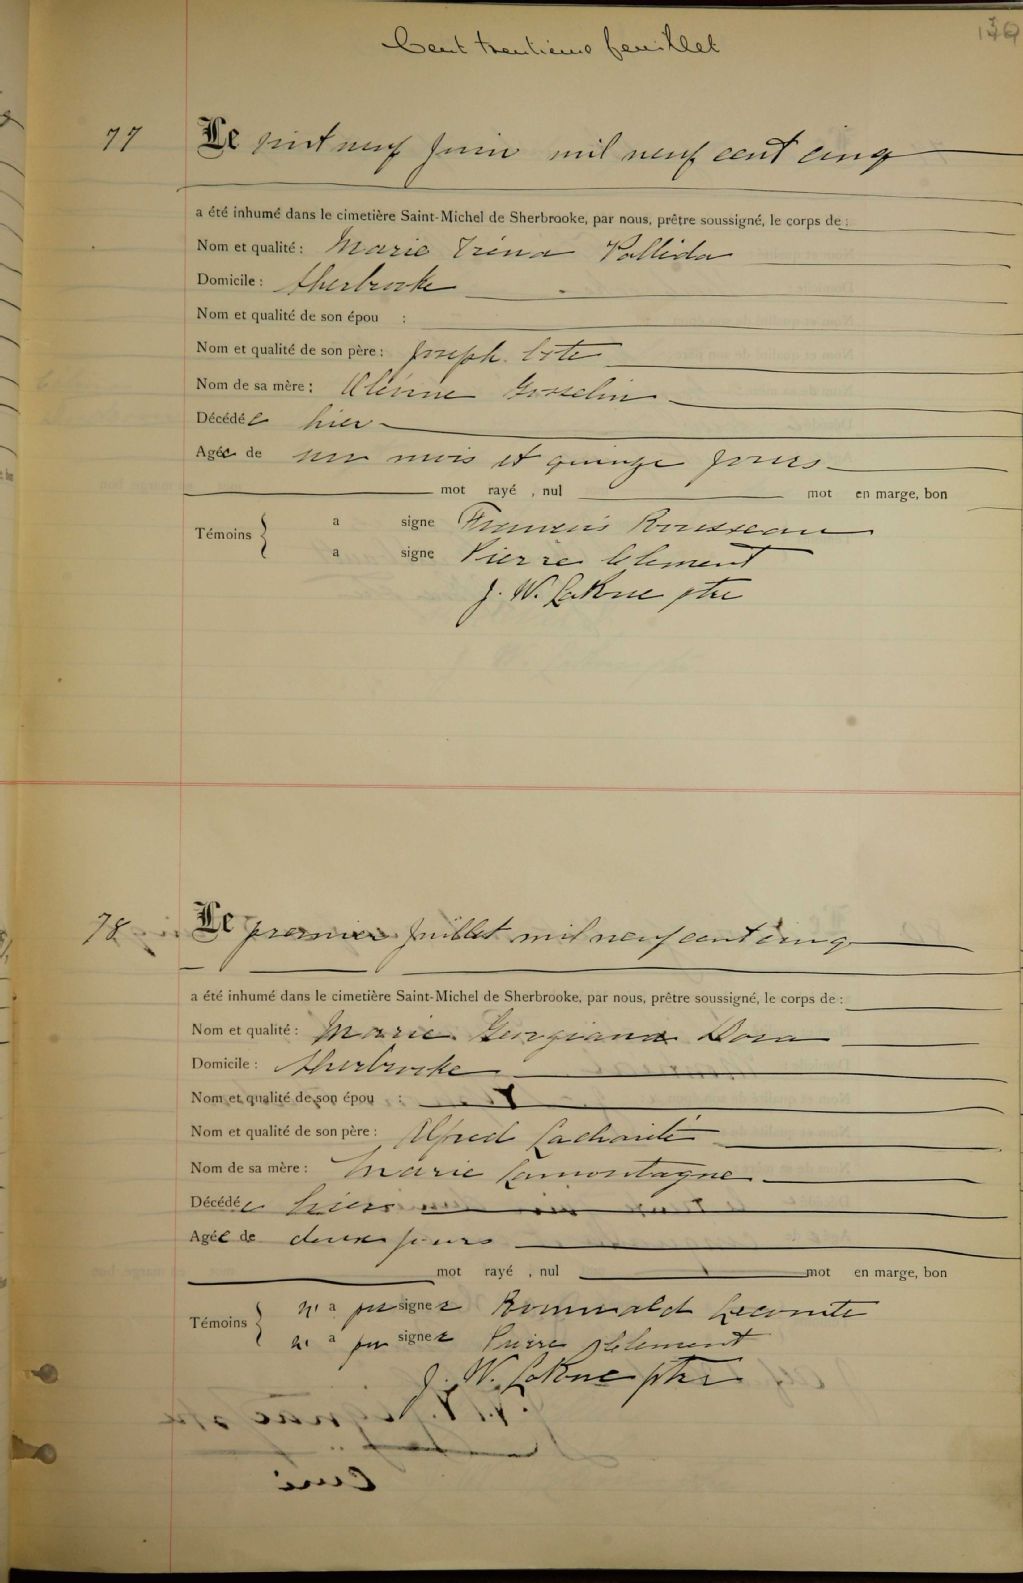 130
Cent trentième feuillet
77
Le vint neuf Juin mil neuf cent cinq
a été inhumé dans le cimetière Saint-Michel de Sherbrooke, par nous, prêtre soussigné, le corps de :
Nom et qualité : Marie Iréna
Domicile : Sherbrooke
Nom et qualité de son épou :
Nom et qualité de son père : Joseph Cote
Nom de sa mère : Gosselin
Décédée hier
Agée de un mois et quinze jours
mot rayé , nul mot en marge, bon
Témoins a signe François Rousseau
a signe Pierre Clement
J. W. LaRue ptre
78
Le premier Juillet mil neuf cent cinq
a été inhumé dans le cimetière Saint-Michel de Sherbrooke, par nous, prêtre soussigné, le corps de :
Nom et qualité : Marie Georgiana Dora
Domicile : Sherbrooke
Nom et qualité de son épou :
Nom et qualité de son père : Alfred Lacharité
Nom de sa mère : Marie Lamontagne
Décédée hier
Agée de deux jours
mot rayé , nul mot en marge, bon
Témoins n' a pu signer Romuald Lecomte
n' a pu signer Pierre Clement
J. W. LaRue ptre